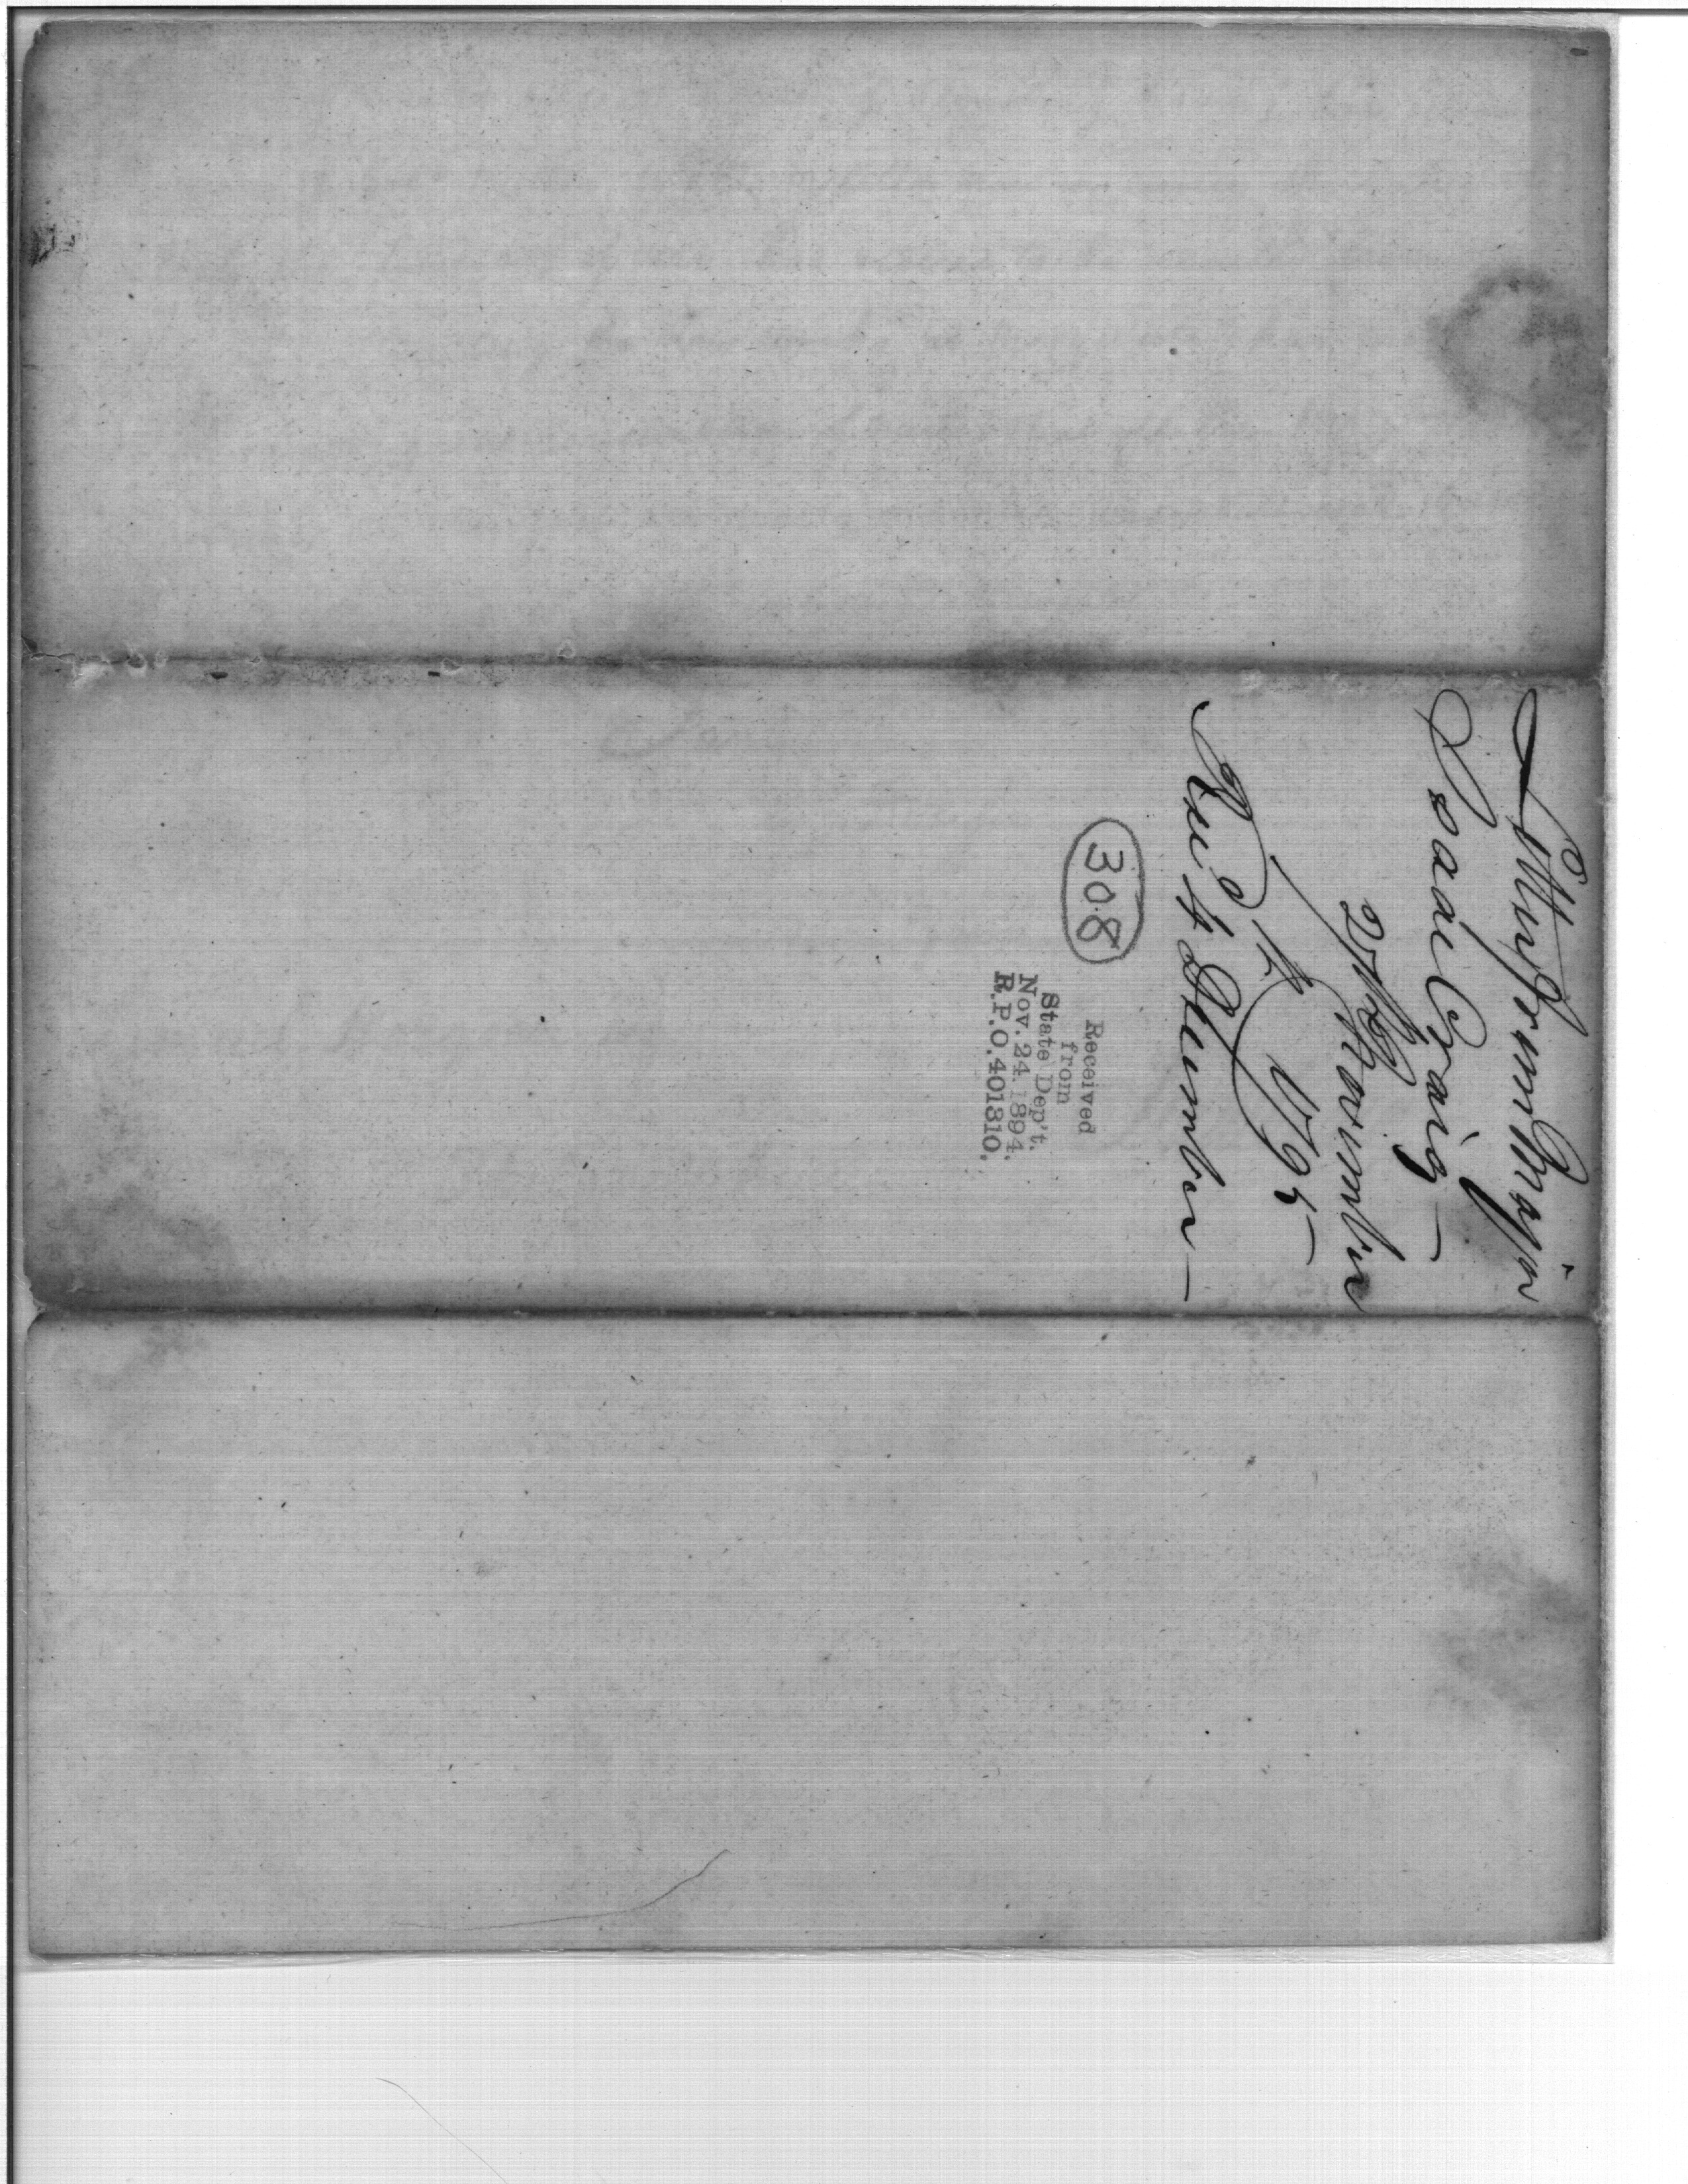 Letter from Major
Isaac Craig —
27th November
1795 —
Rec'd 4 December —
308
Received
from
State Dep't.
Nov. 24, 1894.
R.P.O. 401310.